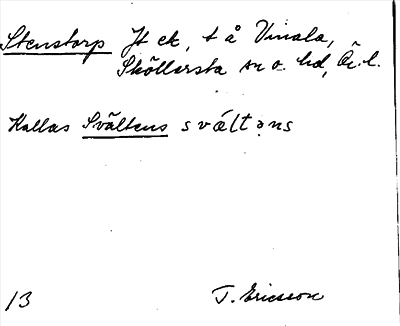 Stenstorp Jt ek, t å Vinala,
Sköllersta sn o. hd, Ör. l.
Kallas Svältens svält̬əns
13 T. Ericsson